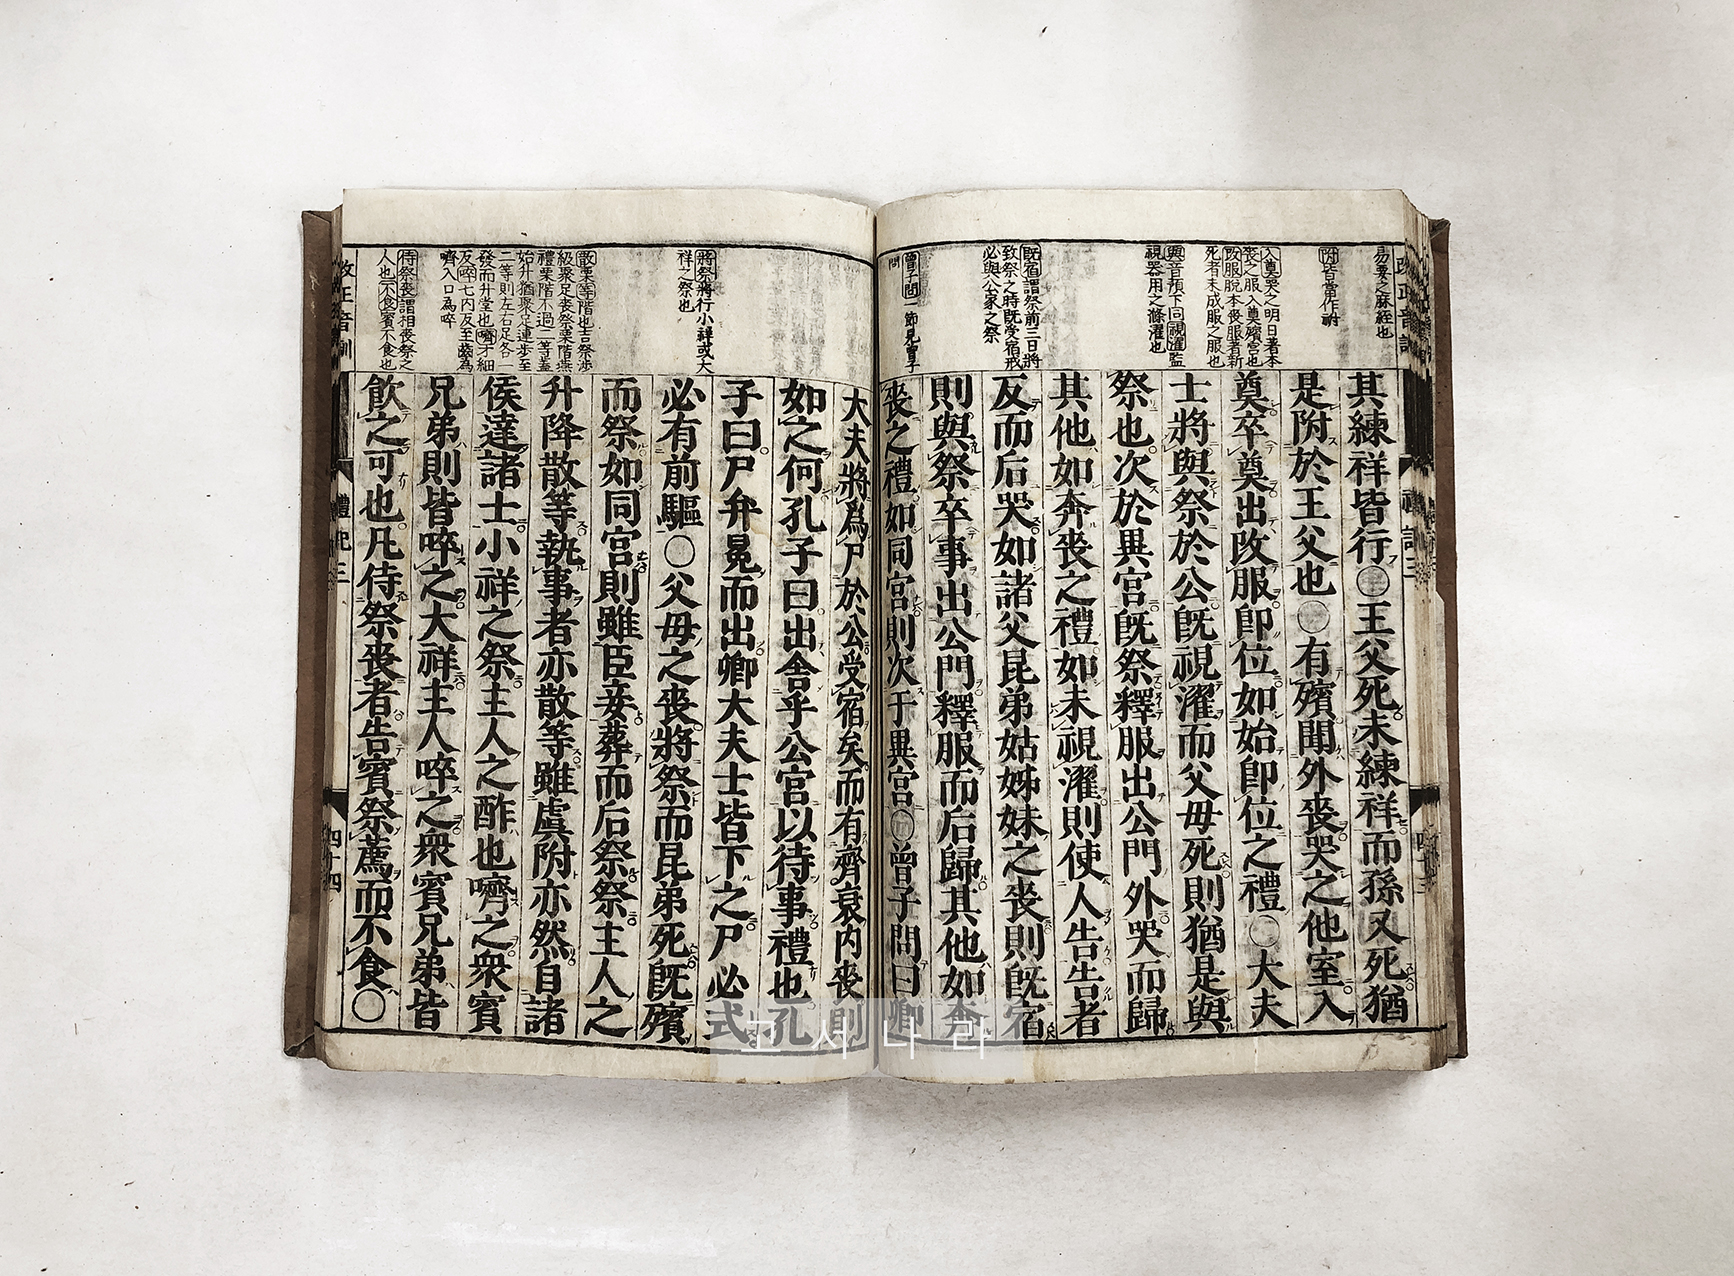 易要之麻絰也
附皆當作祔
入奠奠之明日著本
喪之服入奠殯宮也
改服脫本喪服著新
死者未成服之服也
與音預下同視濯監
視器用之滌濯也
既宿謂祭前三日將
致祭之時既受宿戒
必與公家之祭
曾子問一節見曾子
問
其練祥皆行○王父死未練祥而孫又死猶
是附於王父也○有殯聞外喪哭之他室入
奠卒奠出改服即位如始即位之禮○大夫
士將與祭於公既視濯而父母死則猶是與
祭也次於異宮既祭釋服出公門外哭而歸
其他如奔喪之禮如未視濯則使人告告者
反而后哭如諸父昆弟姑姊妹之喪則既宿
則與祭卒事出公門釋服而后歸其他如奔
喪之禮如同宮則次于異宮○曾子問曰卿
將祭將行小祥或大
祥之祭也
散栗等階也吉祭涉
級聚足喪祭栗階燕
禮栗階不過二等蓋
始升猶聚足連步至
二等則左右足各一
發而升堂也嚌才細
反啐七內反至齒為
嚌入口為啐
侍祭喪謂相喪祭之
人也不食賓不食也
大夫將為尸於公受宿矣而有齊衰內喪則
如之何孔子曰出舍乎公宮以待事禮也孔
子曰尸弁冕而出卿大夫士皆下之尸必式
必有前驅○父母之喪將祭而昆弟死既殯
而祭如同宮則雖臣妾葬而后祭祭主人之
升降散等執事者亦散等雖虞附亦然自諸
侯達諸士小祥之祭主人之酢也嚌之衆賓
兄弟則皆啐之大祥主人啐之衆賓兄弟皆
飲之可也○凡侍祭喪者告賓祭薦而不食○
改正音訓
禮記三
四十四
고서나라